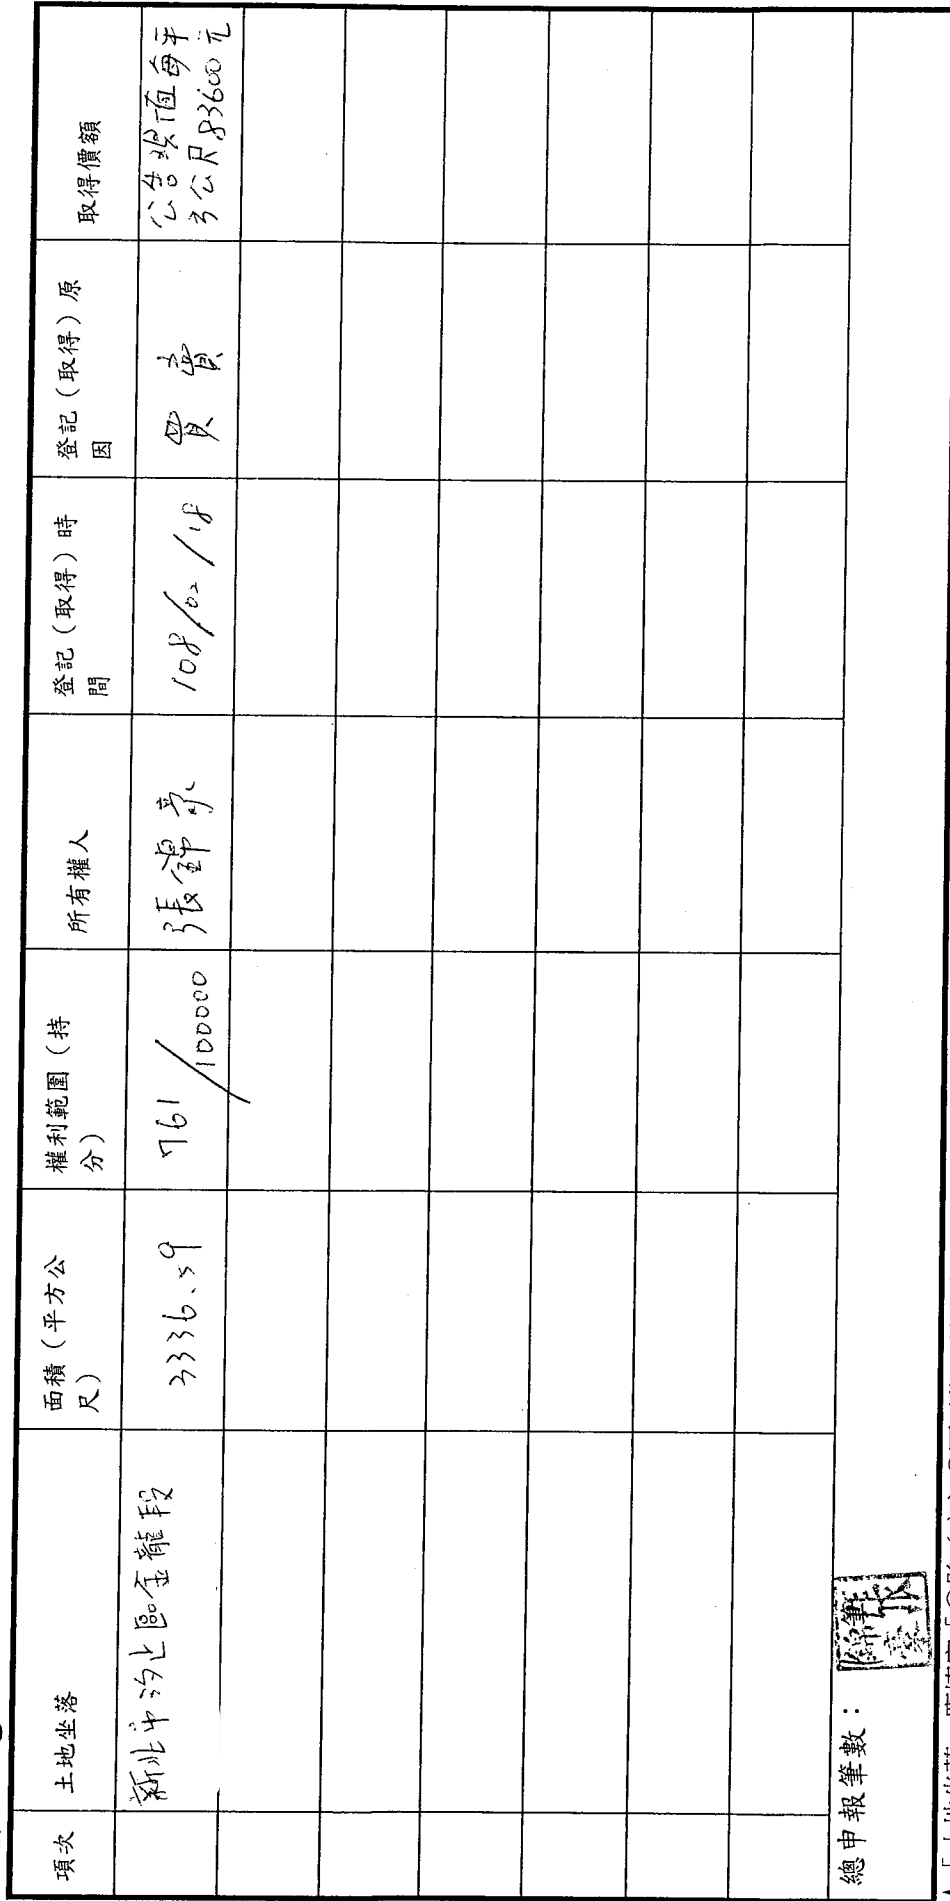 項次
土地坐落
面積（平方公
尺）
權利範圍（持
分）
所有權人
登記（取得）時
間
登記（取得）原
因
取得價額
新北市汐止區金龍段
3336.59
761/100000
張錦豪
108/02/18
買賣
公告現值每平
方公尺83600元
總申報筆數：